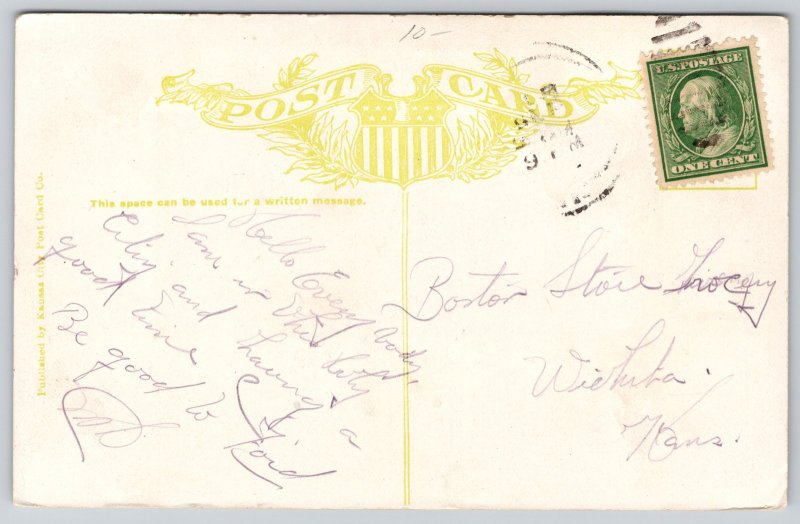 10-
POST CARD
U.S. POSTAGE
ONE CENT
This space can be used for a written message.
Published by Kansas City Post Card Co.
Hello Every body,
I am in the City
City and having a
good time
Be good to
Boston Store Grocery
Wichita.
Kans.